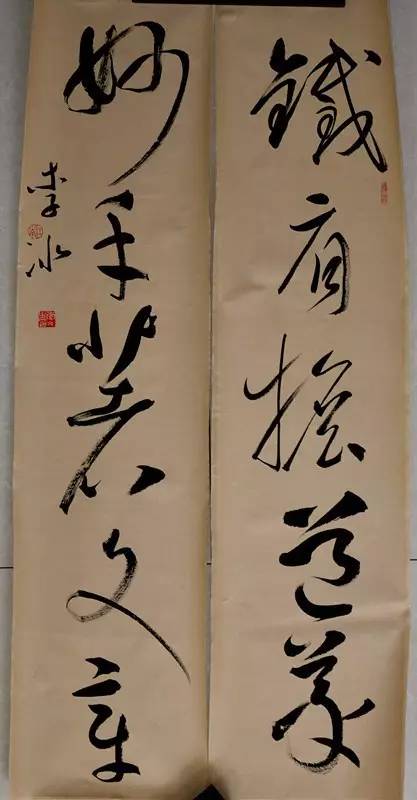 鐵肩擔道義
妙手著文章
李冰